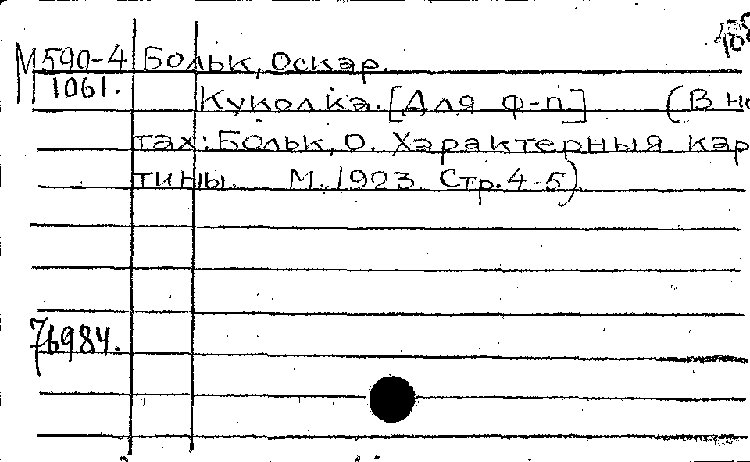 М590-4 Больк, Оскар.
1061.
Куколка. [Для ф-п.] (В но
тах: Больк, О. Характерныя кар
тины. М. 1903. Стр. 4-5)
76984.